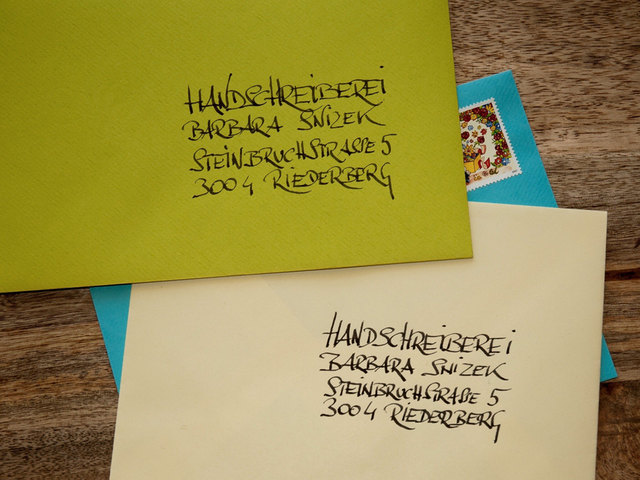 HANDSCHREIBEREI
BARBARA SNIZEK
STEINBRUCHSTRAßE 5
3004 RIEDERBERG
HANDSCHREIBEREI
BARBARA SNIZEK
STEINBRUCHSTRAßE 5
3004 RIEDERBERG